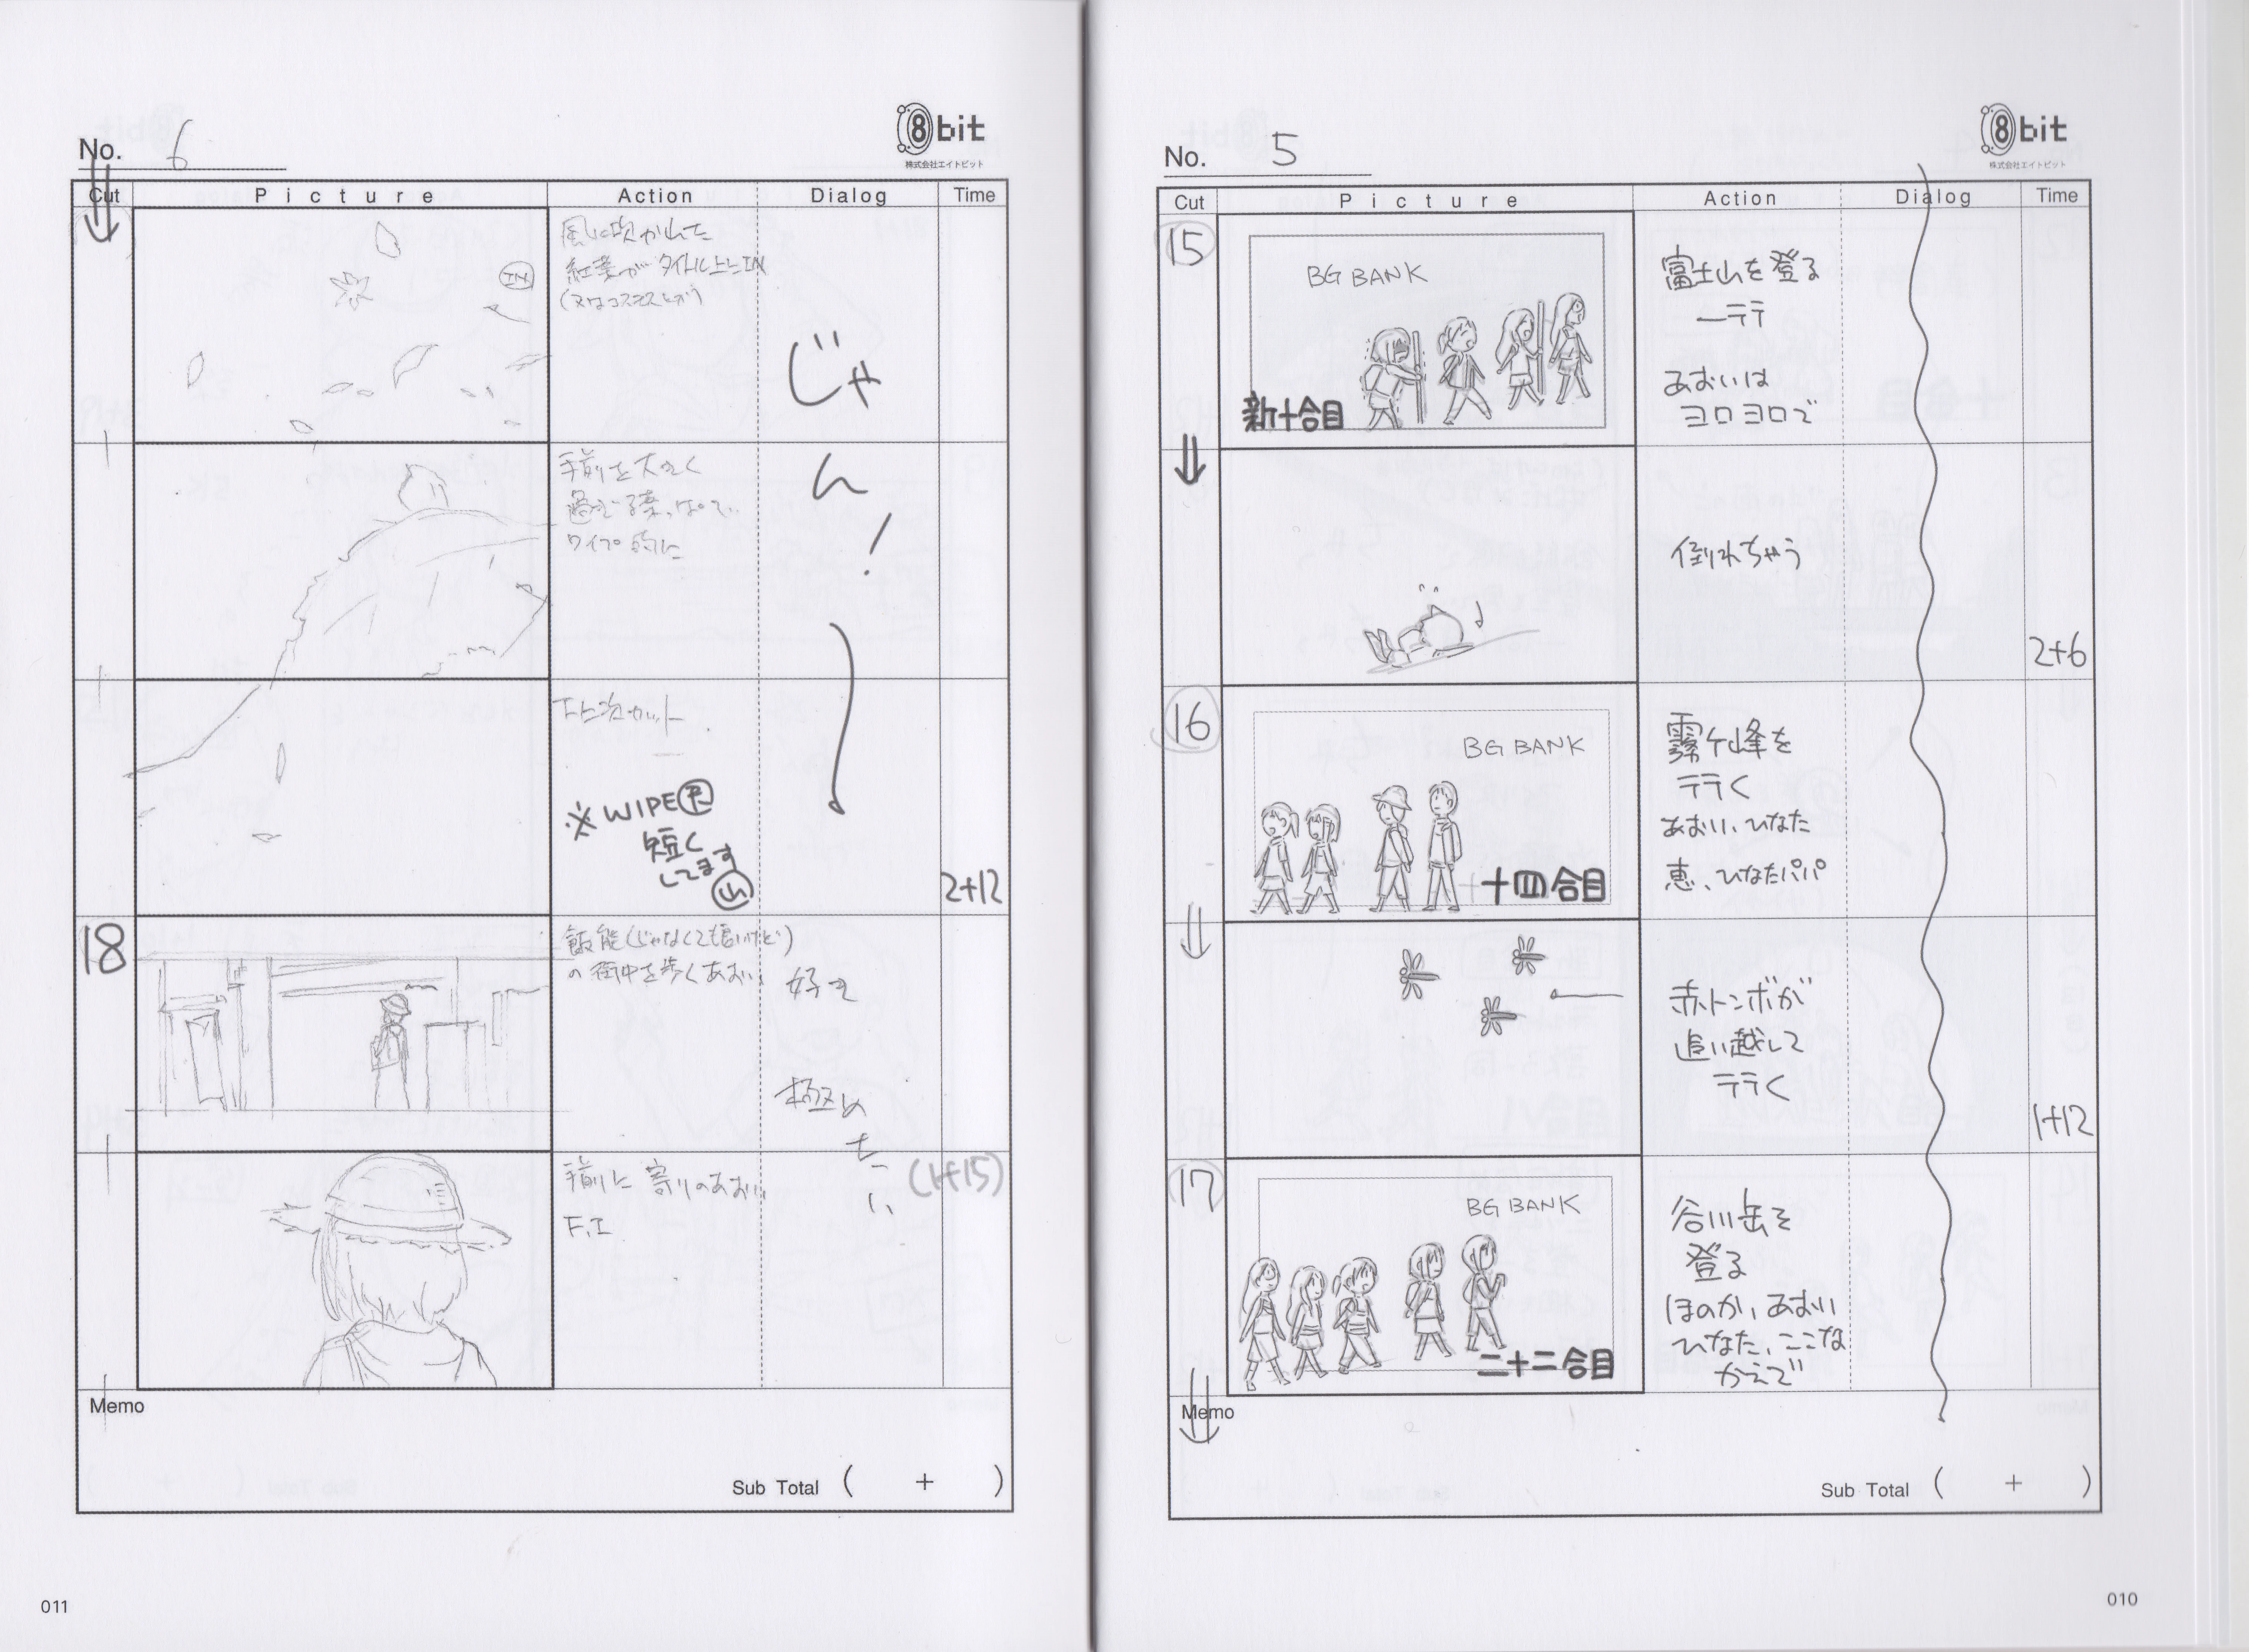 No. 5
8bit
株式会社エイトビット
Cut Picture Action Dialog Time
15
BG BANK
新十合目
富士山を登る
一テテ
あおいは
ヨロヨロで
倒れちゃう
2+6
16
BG BANK
十四合目
霧ケ峰を
テテく
あおい、ひなた
恵、ひなたパパ
赤トンボが
追い越して
テテく
1+12
17
BG BANK
二十二合目
谷川岳を
登る
ほのか、あおい
ひなた、ここな
かえで
Memo
Sub Total ( + )
010
No. 6
8bit
株式会社エイトビット
Cut Picture Action Dialog Time
IN
風に吹かれた
紅葉がタイトル上にIN
(又はコスモスとか)
じゃ
ん
!
手前を大きく
過ぎる葉っぱで
ワイプ的に
次カット
※WIPE尺
短く
してます
山
2+12
18
飯能(じゃなくても良いけど)
の街中を歩くあおい
好き
極め
たい
(1+15)
手前に寄りのあおい
F.I
Memo
Sub Total ( + )
011